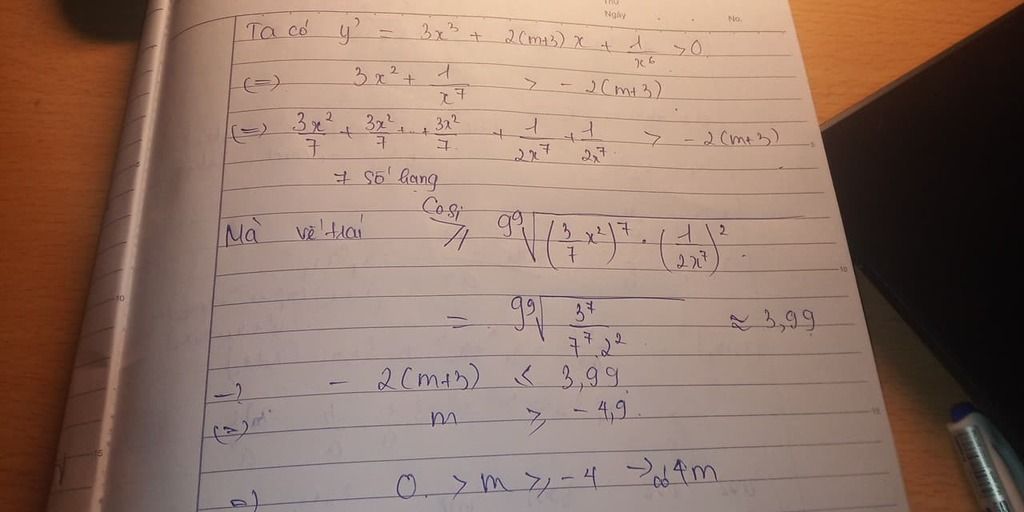 Thứ
Ngày No.
Ta có y' = 3x³ + 2(m+3)x + 1/x⁶ > 0
(=) 3x² + 1/x⁷ > -2(m+3)
(=) 3x²/7 + 3x²/7 + .. + 3x²/7 + 1/2x⁷ + 1/2x⁷ > -2(m+3)
7 số hạng
Mà vế trái Cosi ≥ 9 ⁹√((3/7 x²)⁷ · (1/2x⁷)²)
= 9 ⁹√(3⁷/7⁷.2²) ≈ 3,99
→ -2(m+3) ≤ 3,99
(=) m ≥ -4,9
=) 0 > m ≥ -4 → có 4m